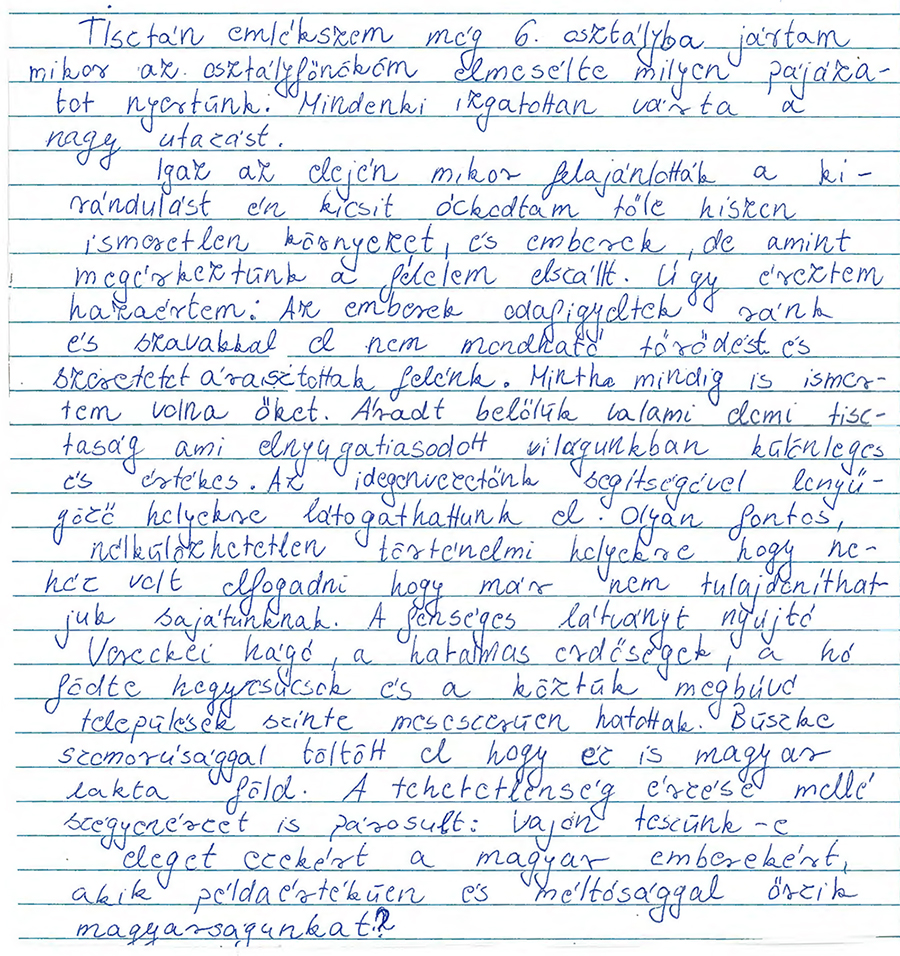 Tisztán emlékszem még 6. osztályba jártam
mikor az osztályfőnököm elmesélte milyen pájáza-
tot nyertünk. Mindenki izgatottan várta a
nagy utazást.
Igaz az elején mikor felajánlották a ki-
rándulást én kicsit óckodtam tőle hiszen
ismeretlen környezet, és emberek, de amint
megérkeztünk a félelem elszállt. Úgy éreztem
hazaértem: Az emberek odafigyeltek ránk
és szavakkal el nem mondható törődést és
szeretetet árasztottak felénk. Mintha mindig is ismer-
tem volna őket. Áradt belőlük valami elemi tisz-
taság ami elnyugatiasodott világunkban különleges
és értékes. Az idegenvezetőnk segítségével lenyű-
göző helyekre látogathattunk el. Olyan fontos,
nélkülözhetetlen történelmi helyekre hogy ne-
héz volt elfogadni hogy már nem tulajdoníthat
juk sajátunknak. A fenséges látványt nyujtó
Vereckei hágó, a hatalmas erdőségek, a hó
födte hegycsúcsok és a köztük megbúvó
települések szinte meseszerűen hatottak. Büszke
szomorúsággal töltött el hogy ez is magyar
lakta föld. A tehetetlenség érzése mellé
szégyenérzet is párosult: vajon teszünk-e
eleget ezekért a magyar emberekért,
akik példaértékűen és méltósággal őrzik
magyarságunkat?